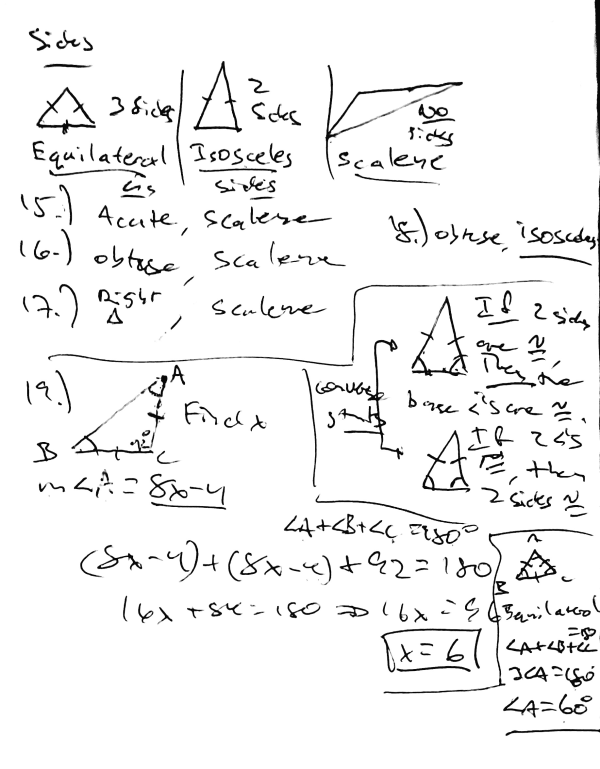 Sides
3 sides
2 sides
No sides
Equilateral
Isosceles
Scalene
sides
15.) Acute, scalene
16.) obtuse, scalene
17.) Right Δ, scalene
18.) obtuse, isosceles
If 2 sides
are ≅,
Then the
base ∠'s are ≅.
converse
If 2 ∠'s
≅, then
2 sides ≅
19.)
A
B
C
92°
Find x
m∠A = 8x-4
∠A+∠B+∠C=180°
(8x-4)+(8x-4)+92=180
16x+84=180 ⇒ 16x=96
x=6
B
Equilateral
∠A+∠B+∠C
=180
3∠A=180°
∠A=60°